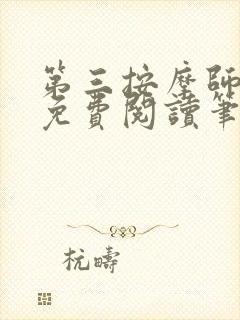 第三按摩師
免費閱讀筆
杭疇